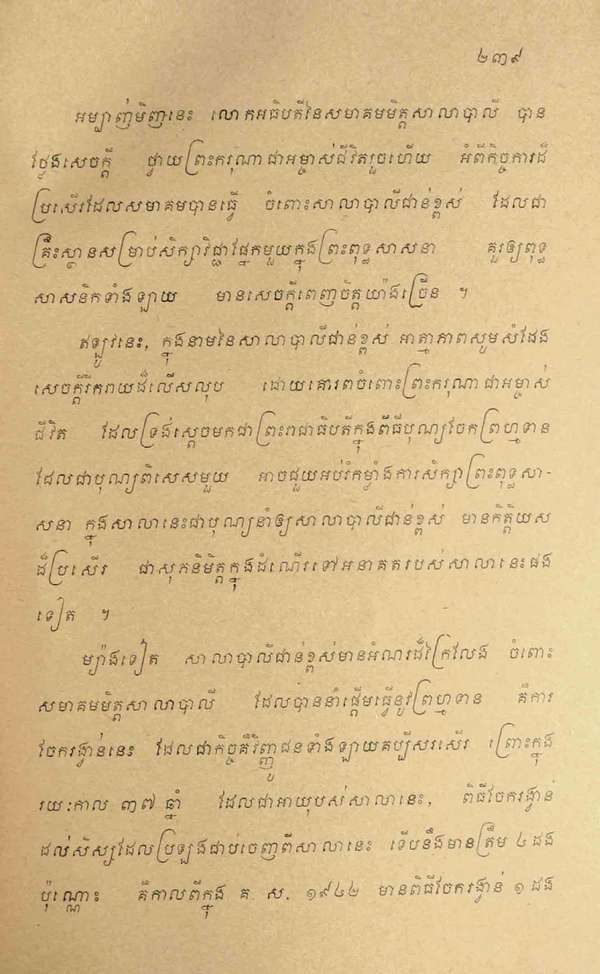 ២៣៩
អម្បាញ់មិញនេះ លោកអធិបតីនៃសមាគមមិត្តសាលាបាលី បាន
ថ្លែងសេចក្តី ថ្វាយព្រះករុណាជាអម្ចាស់ជីវិតរួចហើយ អំពីកិច្ចការដ៏
ប្រសើរដែលសមាគមបានធ្វើ ចំពោះសាលាបាលីជាន់ខ្ពស់ ដែលជា
គ្រឹះស្ថានសម្រាប់សិក្សាវិជ្ជាផ្នែកមួយក្នុងព្រះពុទ្ធសាសនា គួរឲ្យពុទ្ធ
សាសនិកទាំងឡាយ មានសេចក្តីពេញចិត្តយ៉ាងច្រើន ។
ឥឡូវនេះ, ក្នុងនាមនៃសាលាបាលីជាន់ខ្ពស់ អាត្មាភាពសូមសំដែង
សេចក្តីរីករាយដ៏លើសលុប ដោយគោរពចំពោះព្រះករុណាជាអម្ចាស់
ជីវិត ដែលទ្រង់ស្តេចមកជាព្រះរាជាធិបតីក្នុងពិធីបុណ្យចែកព្រហ្មទាន
ដែលជាបុណ្យពិសេសមួយ អាចជួយអប់រំកម្លាំងការសិក្សាព្រះពុទ្ធសា-
សនា ក្នុងសាលានេះជាបុណ្យនាំឲ្យសាលាបាលីជាន់ខ្ពស់ មានកិត្តិយស
ដ៏ប្រសើរ ជាសុភនិមិត្តក្នុងដំណើរទៅអនាគតរបស់សាលានេះផង
ទៀត ។
ម្យ៉ាងទៀត សាលាបាលីជាន់ខ្ពស់មានអំណរដ៏ក្រៃលែង ចំពោះ
សមាគមមិត្តសាលាបាលី ដែលបាននាំផ្តើមធ្វើនូវព្រហ្មទាន គឺការ
ចែករង្វាន់នេះ ដែលជាកិច្ចគឺវិញ្ញូជនទាំងឡាយគប្បីសរសើរ ព្រោះក្នុង
រយៈកាល ៣៧ ឆ្នាំ ដែលជាអាយុបស់សាលានេះ, ពិធីចែករង្វាន់
ដល់សិស្សដែលប្រឡងជាប់ចេញពីសាលានេះ ទើបនឹងមានត្រឹម ៤ ដង
ប៉ុណ្ណោះ គឺកាលពីក្នុង គ. ស. ១៩៤៤ មានពិធីចែករង្វាន់ ១ ដង